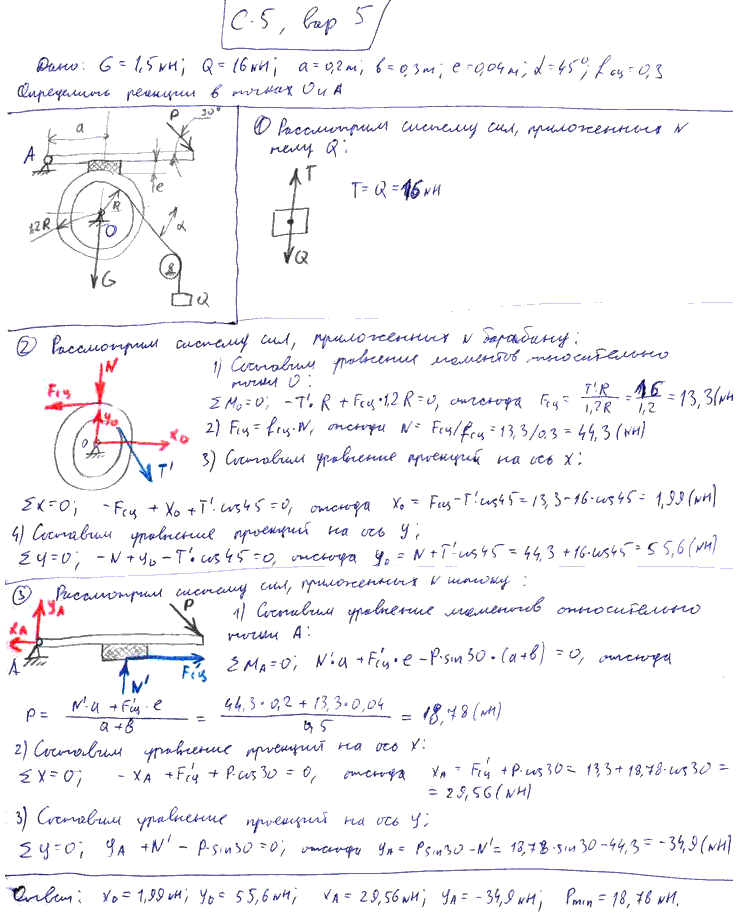 С.5, вар 5
Дано: G = 1,5 кН; Q = 16 кН; a = 0,2 м; в = 0,3 м; e = 0,04 м; α = 45°; fсц = 0,3
Определить реакции в точках O и A
a
P
30°
A
e
R
1,2R
O
α
G
Q
① Рассмотрим систему сил, приложенных к
телу Q:
T
T = Q = 16 кН
Q
② Рассмотрим систему сил, приложенных к барабану:
1) Составим уравнение моментов относительно
точки O:
ΣMo = 0; -T'·R + Fсц·1,2R = 0, отсюда Fсц = T'·R / 1,2R = 16 / 1,2 = 13,3 (кН)
2) Fсц = fсц·N, отсюда N = Fсц/fсц = 13,3/0.3 = 44,3 (кН)
3) Составим уравнение проекций на ось X:
N
Fсц
Yo
O
Xo
T'
ΣX = 0; -Fсц + Xo + T'·cos45 = 0, отсюда Xo = Fсц - T'·cos45 = 13,3 - 16·cos45 = 1,99 (кН)
4) Составим уравнение проекций на ось Y;
ΣY = 0; -N + Yo - T'·cos45 = 0, отсюда Yo = N + T'·cos45 = 44,3 + 16·cos45 = 55,6 (кН)
③ Рассмотрим систему сил, приложенных к штоку:
1) Составим уравнение моментов относительно
точки A:
YA
XA
A
P
F'сц
N'
ΣMA = 0; N'·a + F'сц·e - P·sin30·(a+в) = 0, отсюда
P = N'·a + F'сц·e / a+в = 44,3·0,2 + 13,3·0,04 / 0,5 = 18,78 (кН)
2) Составим уравнение проекций на ось X:
ΣX = 0; -XA + F'сц + P·cos30 = 0, отсюда XA = F'сц + P·cos30 = 13,3 + 18,78·cos30 =
= 29,56 (кН)
3) Составим уравнение проекций на ось Y;
ΣY = 0; YA + N' - P·sin30 = 0; отсюда YA = Psin30 - N' = 18,78·sin30 - 44,3 = -34,9 (кН)
Ответ: Xo = 1,99 кН; Yo = 55,6 кН; XA = 29,56 кН; YA = -34,9 кН; Pmin = 18,78 кН.